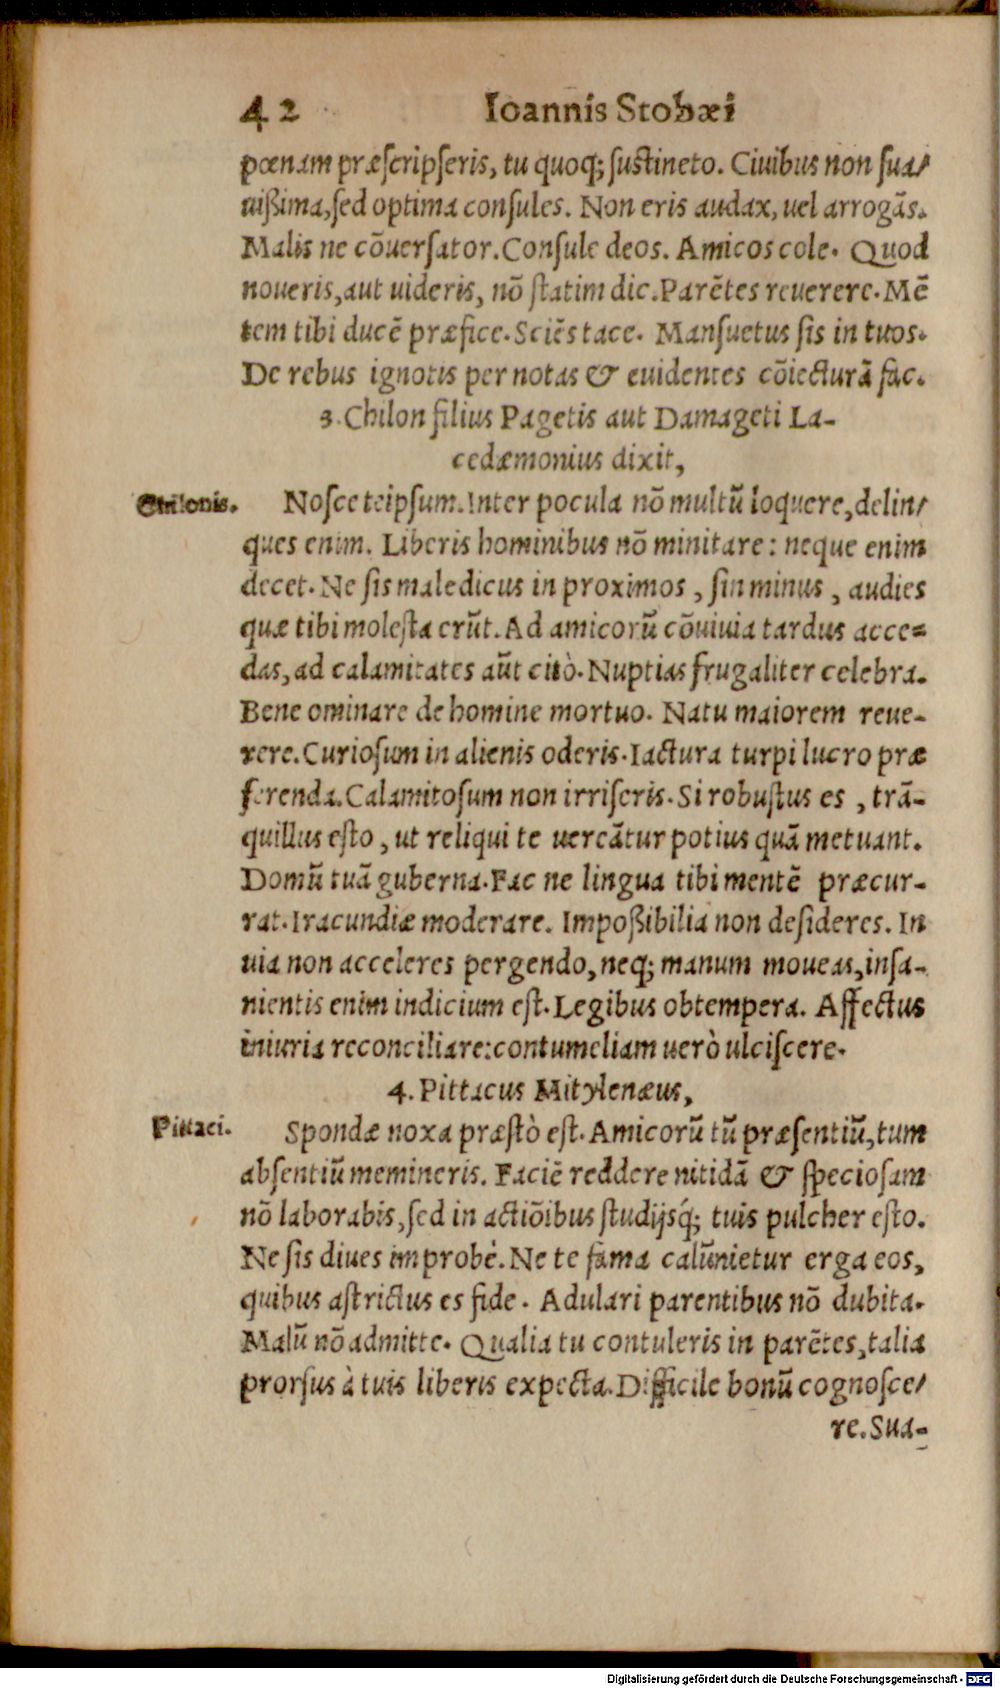 42 Ioannis Stobæi
pœnam præscripseris, tu quoq; sustineto. Ciuibus non sua/
uißima, sed optima consules. Non eris audax, uel arrogãs.
Malis ne cõuersator. Consule deos. Amicos cole. Quod
noueris, aut uideris, nõ statim dic. Parẽtes reuerere. Mẽ
tem tibi ducẽ præfice. Sciẽs tace. Mansuetus sis in tuos.
De rebus ignotis per notas & euidentes cõiecturã fac.
3. Chilon filius Pagetis aut Damageti La-
cedæmonius dixit,
Chilonis.
Nosce teipsum. Inter pocula nõ multũ loquere, delin/
ques enim. Liberis hominibus nõ minitare: neque enim
decet. Ne sis maledicus in proximos, sin minus, audies
quæ tibi molesta erũt. Ad amicorũ cõuiuia tardus acce=
das, ad calamitates aũt citò. Nuptias frugaliter celebra.
Bene ominare de homine mortuo. Natu maiorem reue-
rere. Curiosum in alienis oderis. Iactura turpi lucro præ
ferenda. Calamitosum non irriseris. Si robustus es, trã-
quillus esto, ut reliqui te uereãtur potius quã metuant.
Domũ tuã guberna. Fac ne lingua tibi mentẽ præcur-
rat. Iracundiæ moderare. Impoßibilia non desideres. In
uia non acceleres pergendo, neq; manum moueas, insa-
nientis enim indicium est. Legibus obtempera. Affectus
iniuria reconciliare: contumeliam uerò ulciscere.
4. Pittacus Mitylenæus,
Pittaci.
Spondæ noxa præstò est. Amicorũ tũ præsentiũ, tum
absentiũ memineris. Faciẽ reddere nitidã & speciosam
nõ laborabis, sed in actiõibus studijsq́; tuis pulcher esto.
Ne sis diues improbè. Ne te fama calũnietur erga eos,
quibus astrictus es fide. Adulari parentibus nõ dubita.
Malũ nõ admitte. Qualia tu contuleris in parẽtes, talia
prorsus à tuis liberis expecta. Difficile bonũ cognosce/
re. Sua-
Digitalisierung gefördert durch die Deutsche Forschungsgemeinschaft - DFG